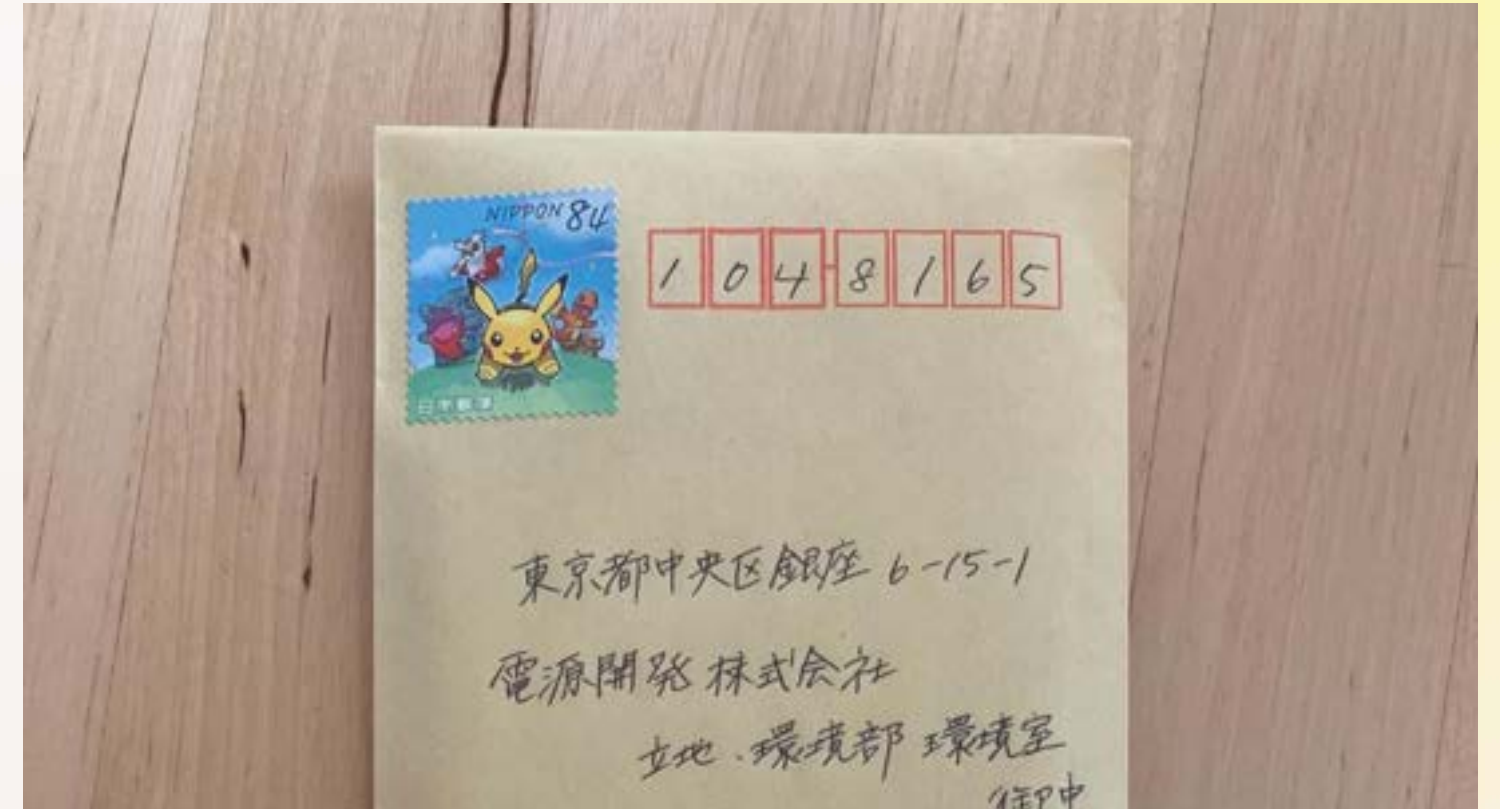 NIPPON 84
日本郵便
1048165
東京都中央区銀座 6-15-1
電源開発 株式会社
立地・環境部 環境室
御中